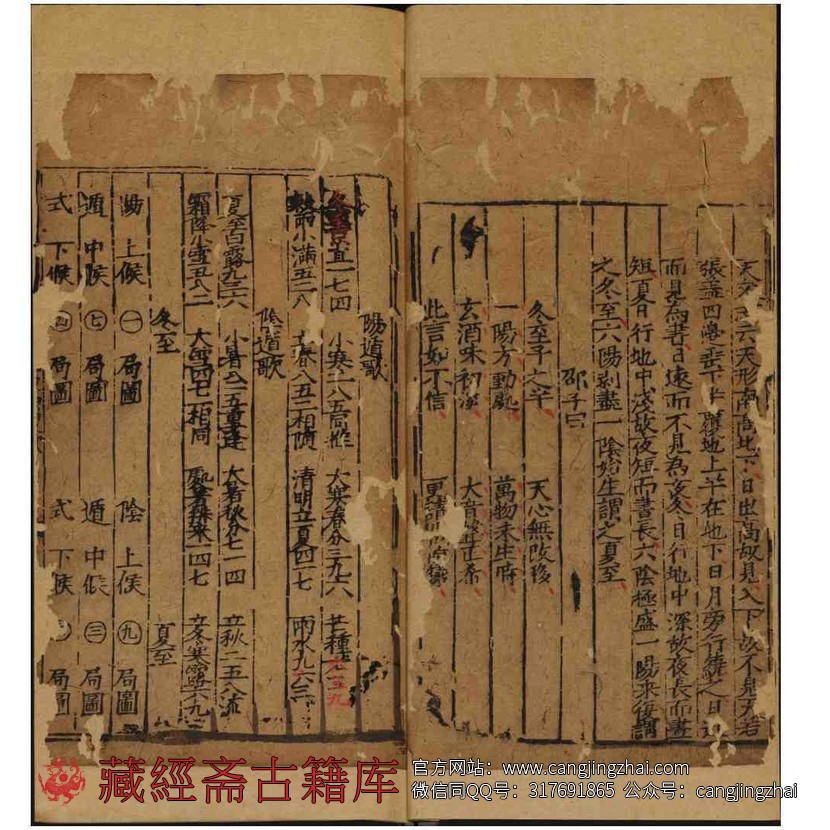 天文志云天形南高北下日出高故見入下故不見天若
張蓋四邊垂下半覆地上半在地下日月旁行繞之日近
而見為晝日遠而不見為夜冬日行地中深故夜長而晝
短夏日行地中淺故夜短而晝長六陰極盛一陽來復謂
之冬至六陽剥盡一陰始生謂之夏至
邵子曰
冬至子之半 天心無改移
一陽初動處 萬物未生時
玄酒味初淡 大音聲正希
此言如不信 更請問
陽遁歌
一七四 小寒二八五同推 大寒春分三九六 芒種六三九
小滿五二八 立春八五二相隨 清明立夏四一七 雨水九六三
陰遁歌
夏至白露九三六 小暑八二五重逢 大暑秋分七一四 立秋二五八流
霜降小雪五八二 大雪四七一相同 處暑排來一四七 立冬寒露六九
冬至 夏至
陽上候㊀局圖 陰上候㊈局圖
遁中候㊆局圖 遁中候㊂局圖
式下候㊃局圖 式下候局圖
藏經斋古籍库
官方网站：www.cangjingzhai.com
微信同QQ号：317691865 公众号：cangjingzhai